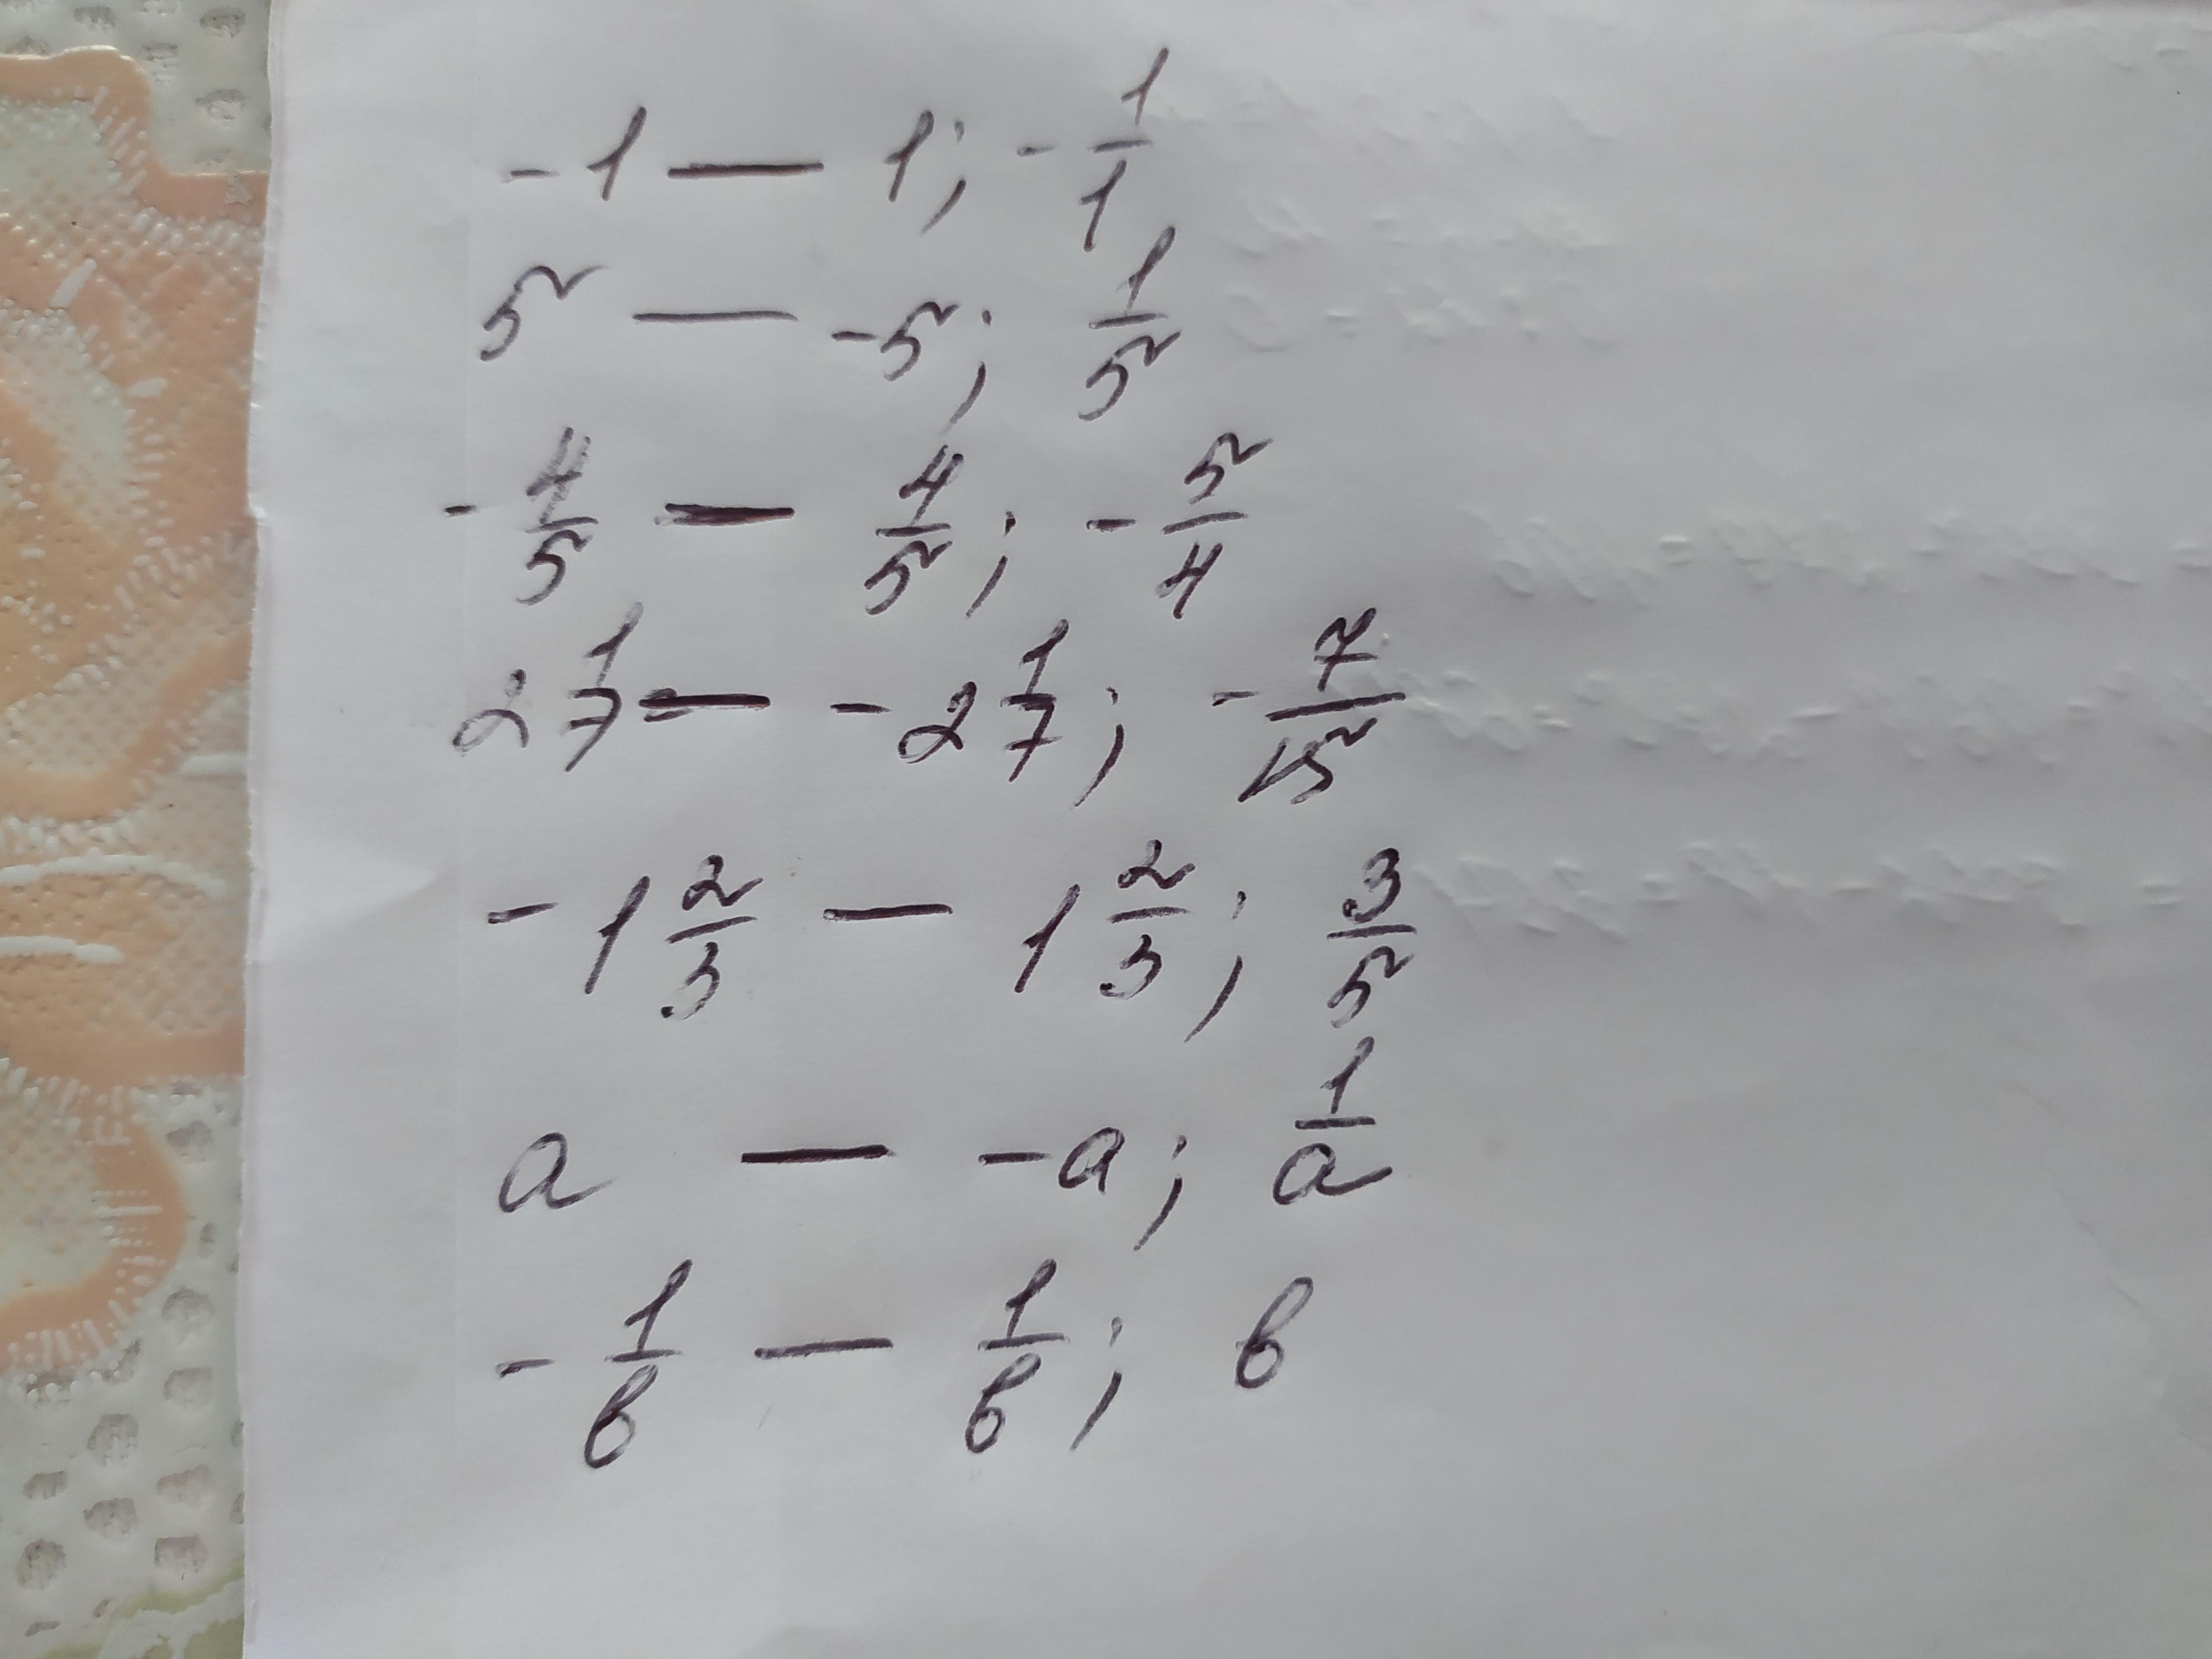 -1 — 1; -1/1
5 — -5; 1/5
-4/5 — 4/5; -5/4
2 1/7 — -2 1/7; -7/15
-1 2/3 — 1 2/3; 3/5
a — -a; 1/a
-1/в — 1/в; в